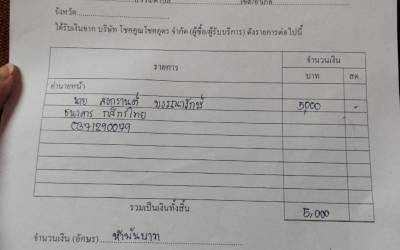 จังหวัด
ได้รับเงินจาก บริษัท โชคคูณโชคอุดร จำกัด (ผู้ซื้อ/ผู้รับบริการ) ดังรายการต่อไปนี้
รายการ จำนวนเงิน
บาท สต.
ค่านายหน้า
นาย สงกรานต์ 5,000 -
ธนาคาร กสิกรไทย
0371290079
รวมเป็นเงินทั้งสิ้น 5,000
จำนวนเงิน (อักษร) ห้าพันบาท